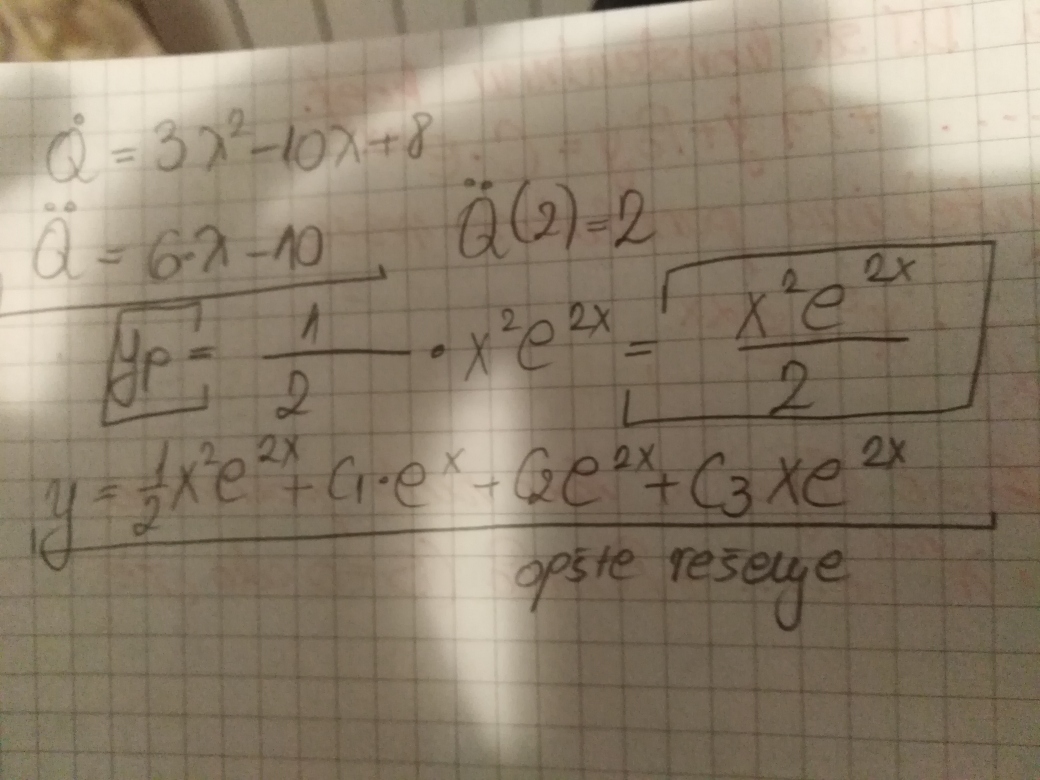 Q̇ = 3λ²-10λ+8
Q̈ = 6·λ-10 Q̈(2)=2
yp = 1/2 · x²e^2x = x²e^2x/2
y = 1/2 x²e^2x + C1·e^x + C2e^2x + C3xe^2x
opšte rešenje